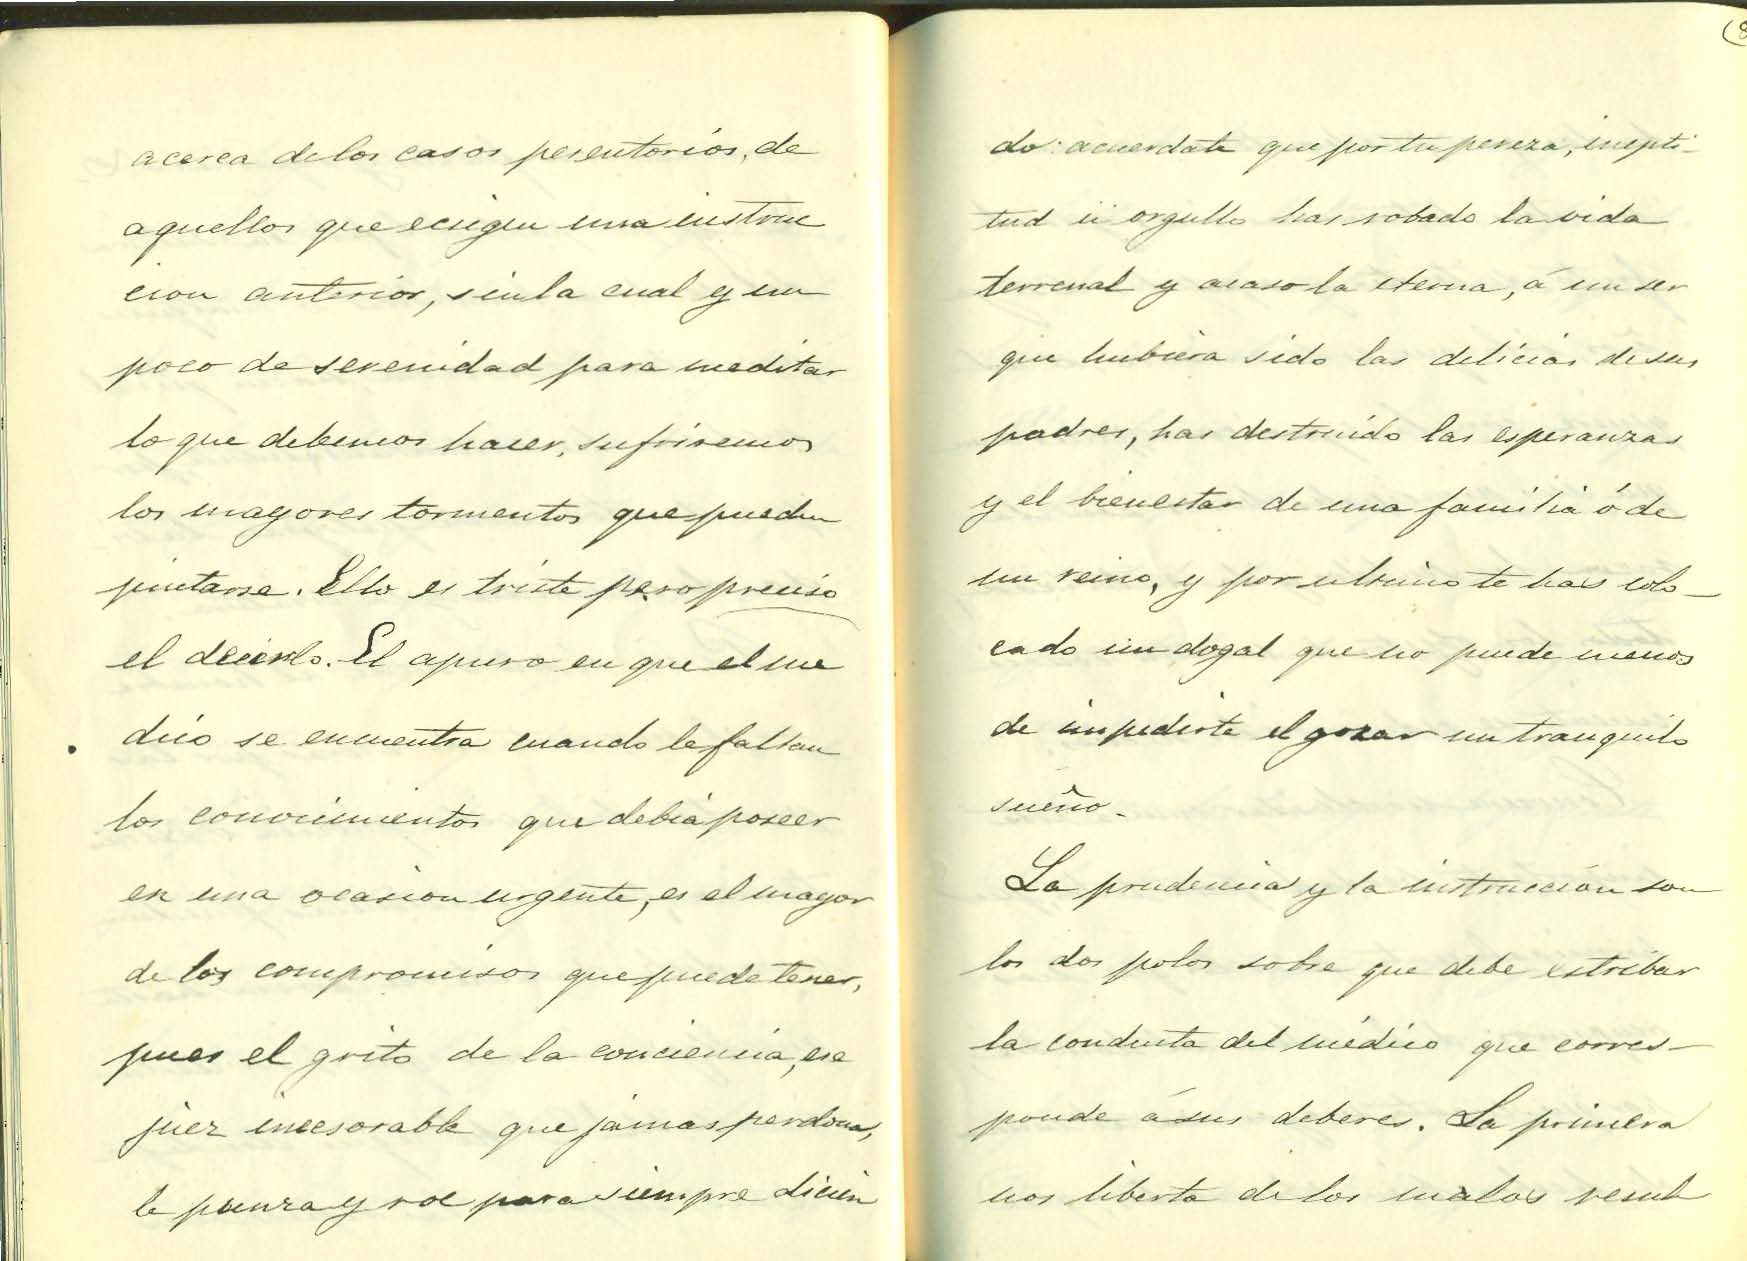 acerca de los casos perentorios, de
aquellos que ecsigen una instruc
cion anterior, sin la cual y un
poco de serenidad para meditar
lo que debemos hacer, sufriremos
los mayores tormentos que pueden
pintarse. Ello es triste pero preciso
el decirlo. El apuro en que el me
dico se encuentra cuando le faltan
los conocimientos que debia poseer
en una ocasion urgente, es el mayor
de los compromisos que puede tener,
pues el grito de la conciencia, ese
juez inecsorable que jamas perdona,
le punza y roe para siempre dicien
(8
do: acuerdate que por tu pereza, inepti-
tud ú orgullo has robado la vida
terrenal y acaso la eterna, á un ser
que hubiera sido las delicias de sus
padres, has destruido las esperanzas
y el bienestar de una familia ó de
un reino, y por ultimo te has colo-
cado un dogal que no puede menos
de impedirte el gozar un tranquilo
sueño.
La prudencia y la instrucción son
los dos polos sobre que debe estribar
la conducta del médico que corres-
ponde á sus deberes. La primera
nos liberta de los malos resul